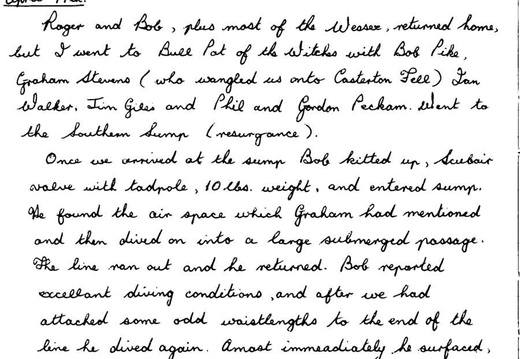 Roger and Bob, plus most of the Wessex, returned home,
but I went to Bull Pot of the Witches with Bob Pike,
Graham Stevens (who wangled us onto Casterton Fell) Ian
Walker, Jim Giles and Phil and Gordon Peckam. Went to
the Southern Sump (resurgance).
Once we arrived at the sump Bob kitted up, Scubair
valve with tadpole, 10 lbs. weight, and entered sump.
He found the air space which Graham had mentioned
and then dived on into a large submerged passage.
The line ran out and he returned. Bob reported
excellant diving conditions, and after we had
attached some odd waistlengths to the end of the
line he dived again. Amost immeadiately he surfaced,